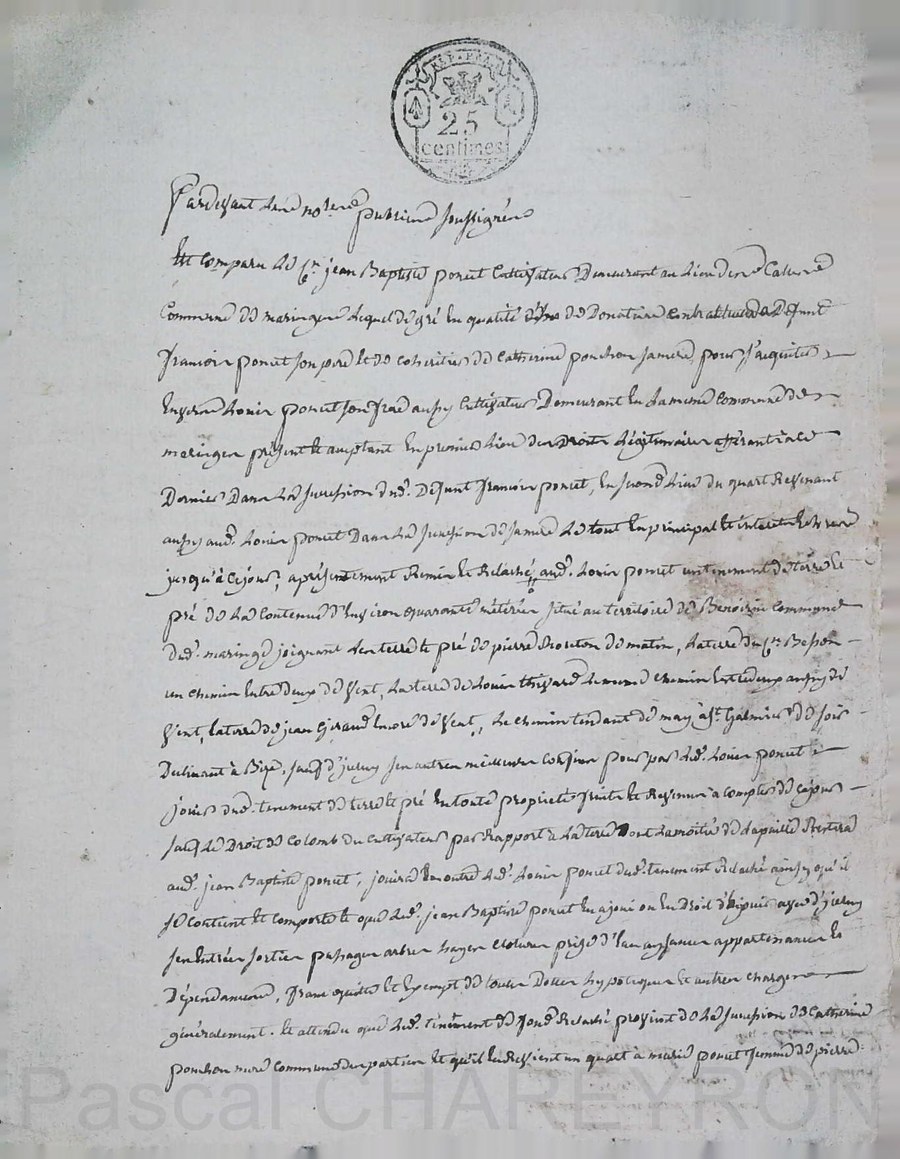 REP. FRA.
25
centimes
Pardevant notaire public soussigné
Est comparu le Cn. jean Baptiste poncet Cultivateur Demeurant au Lieu
Commune de maringes Lequel de gré En qualité de Donataire Contractuel de Défunt
françois poncet son pere Et de coheritier de Catherine ponchon sa mere, pour s'acquiter
Envers Louis poncet son frere aussy Cultivateur Demeurant En La meme Commune de
maringes présent Et acceptant En premier Lieu des Droits Légitimaires afférants à ce
Dernier Dans La succession dud. Défunt françois poncet, En second Lieu du quart Revenant
aussy aud. Louis poncet Dans La succession de sa mere Le tout En principal Et interets
jusqu'à ce jour, a présentement Remis Et Relaché aud. Louis poncet un tenement de terre Et
pré de La Contenue d'Environ quarante méterées situé au territoire de Commune
dud. maringes joignant Les terre Et pré de pierre de matin, La terre du Cn. Besson
un chemin Entre deux de Vent, La terre de Louis Le meme chemin Entre deux aussy de
Vent, La terre de jean Giraud Encore de Vent, Le chemin tendant de à St. Galmier de soir
Declinant à Bize, sauf d'iceluy ses autres meilleurs Confins pour par Led. Louis poncet
jouir dud. tenement de terre Et pré En toute proprieté fruits Et Revenus à compter de ce jour
sauf Le Droit de Colomb du Cultivateur par Rapport à La terre Dont La moitié de La paille Restera
aud. jean Baptiste poncet, jouira En outre Led. Louis poncet dud. tenement Relaché ainsy qu'il
se contient Et comporte Et que Led. jean Baptiste poncet En a joui ou En Droit d'En jouir avec d'iceluy
ses Entrées sorties passages arbres hayes clotures prises d'Eau aysances appartenances Et
Dépendances, franc quitte Et Exempt de toutes Dettes hypotheques Et autres charges
généralement. Et attendu que Led. tenement de fond Relaché provient de La succession de Catherine
ponchon mere commune des parties Et qu'il En Revient un quart à marie poncet femme de pierre
Pascal CHAREYRON